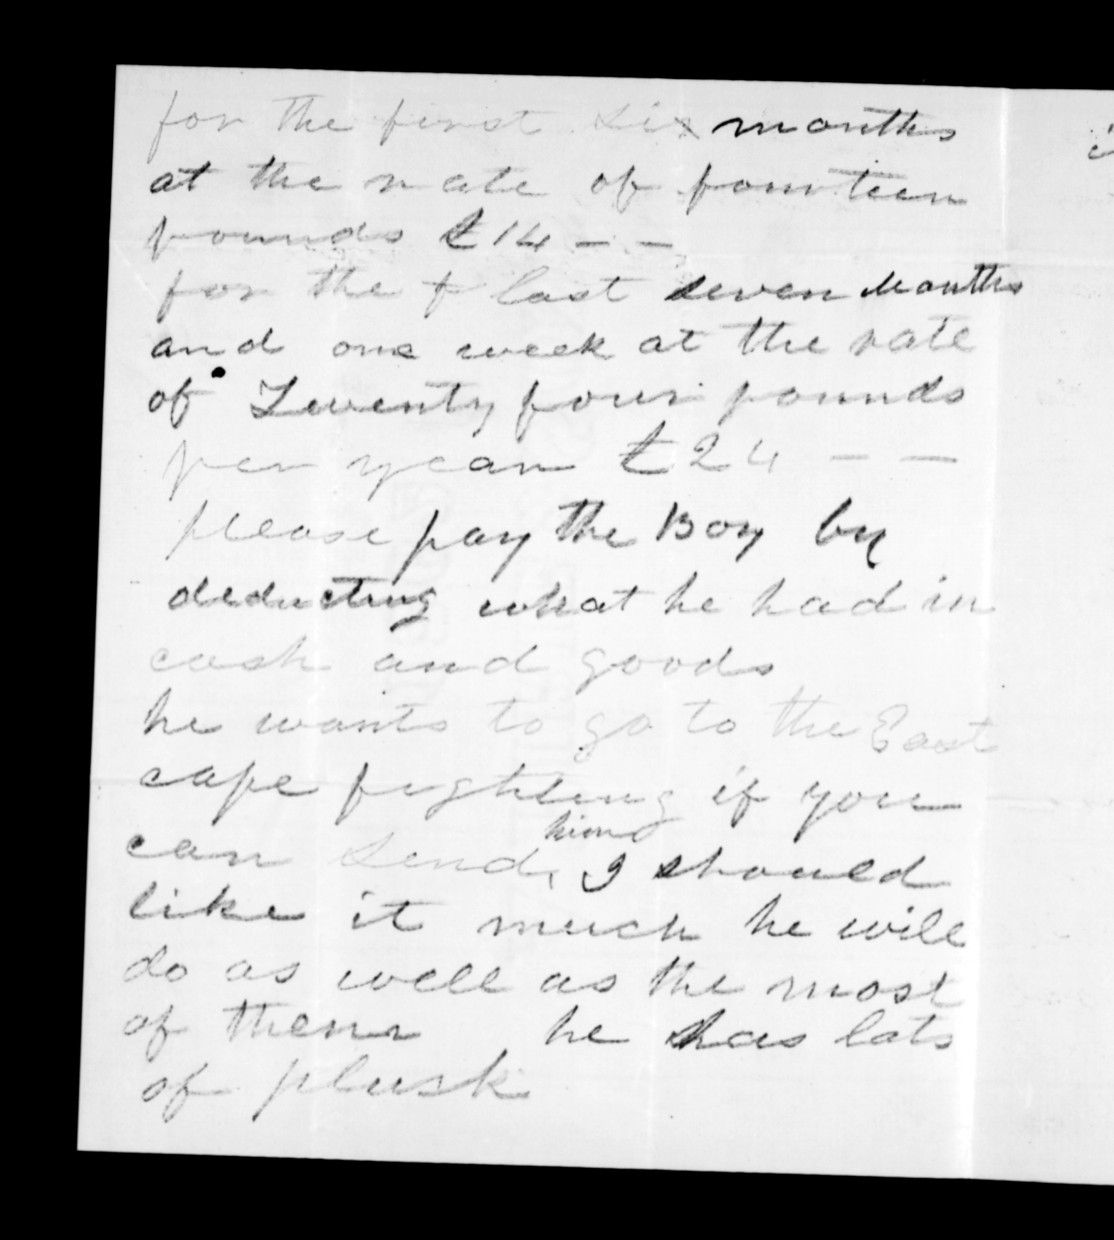 for the first six months
at the rate of fourteen
pounds £14 - -
for the last seven Months
and one week at the rate
of Twenty four pounds
per year £24 - -
please pay the Boy by
deducting what he had in
cash and goods
he wants to go to the East
cape fighting if you
him
can send, I should
like it much he will
do as well as the most
of them he has lots
of plusk